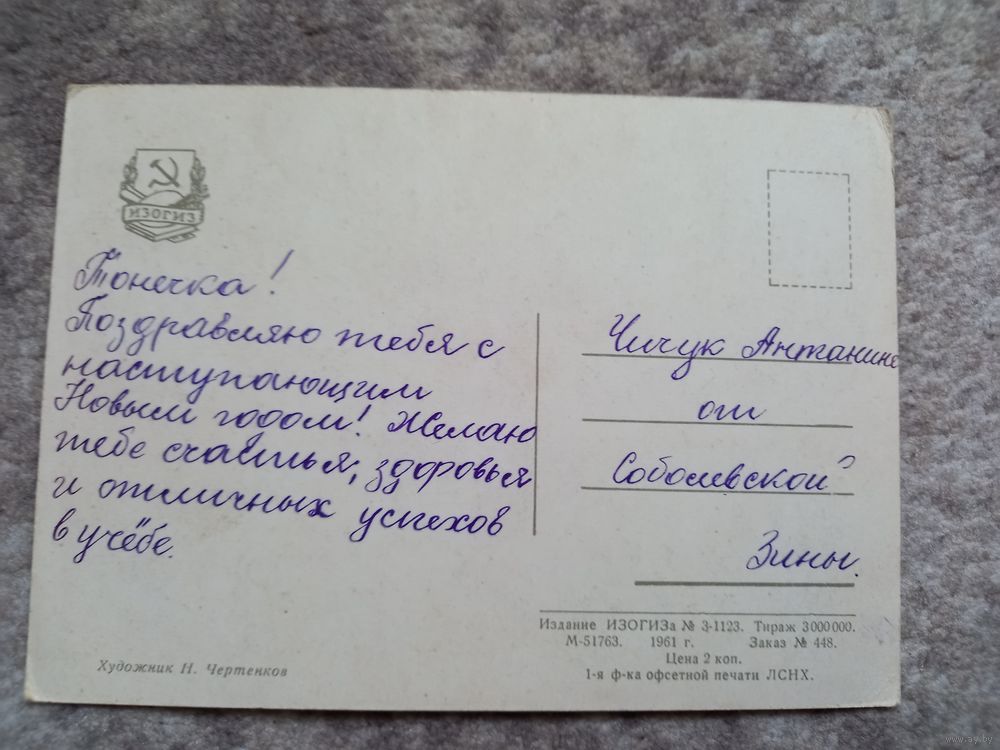 ИЗОГИЗ
Тонечка!
Поздравляю тебя с
наступающим
Новым годом! Желаю
тебе счастья, здоровья
и отличных успехов
в учёбе.
Художник Н. Чертенков
Чичук Антанине
от
Соболевской
Зины.
Издание ИЗОГИЗа № 3-1123. Тираж 3000000.
М-51763. 1961 г. Заказ № 448.
Цена 2 коп.
1-я ф-ка офсетной печати ЛСНХ.
www.ay.by